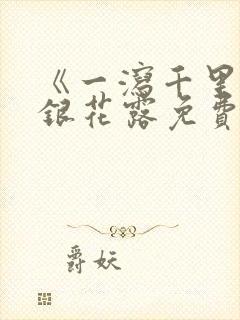 《一瀉千里
銀花露免費
爵妖